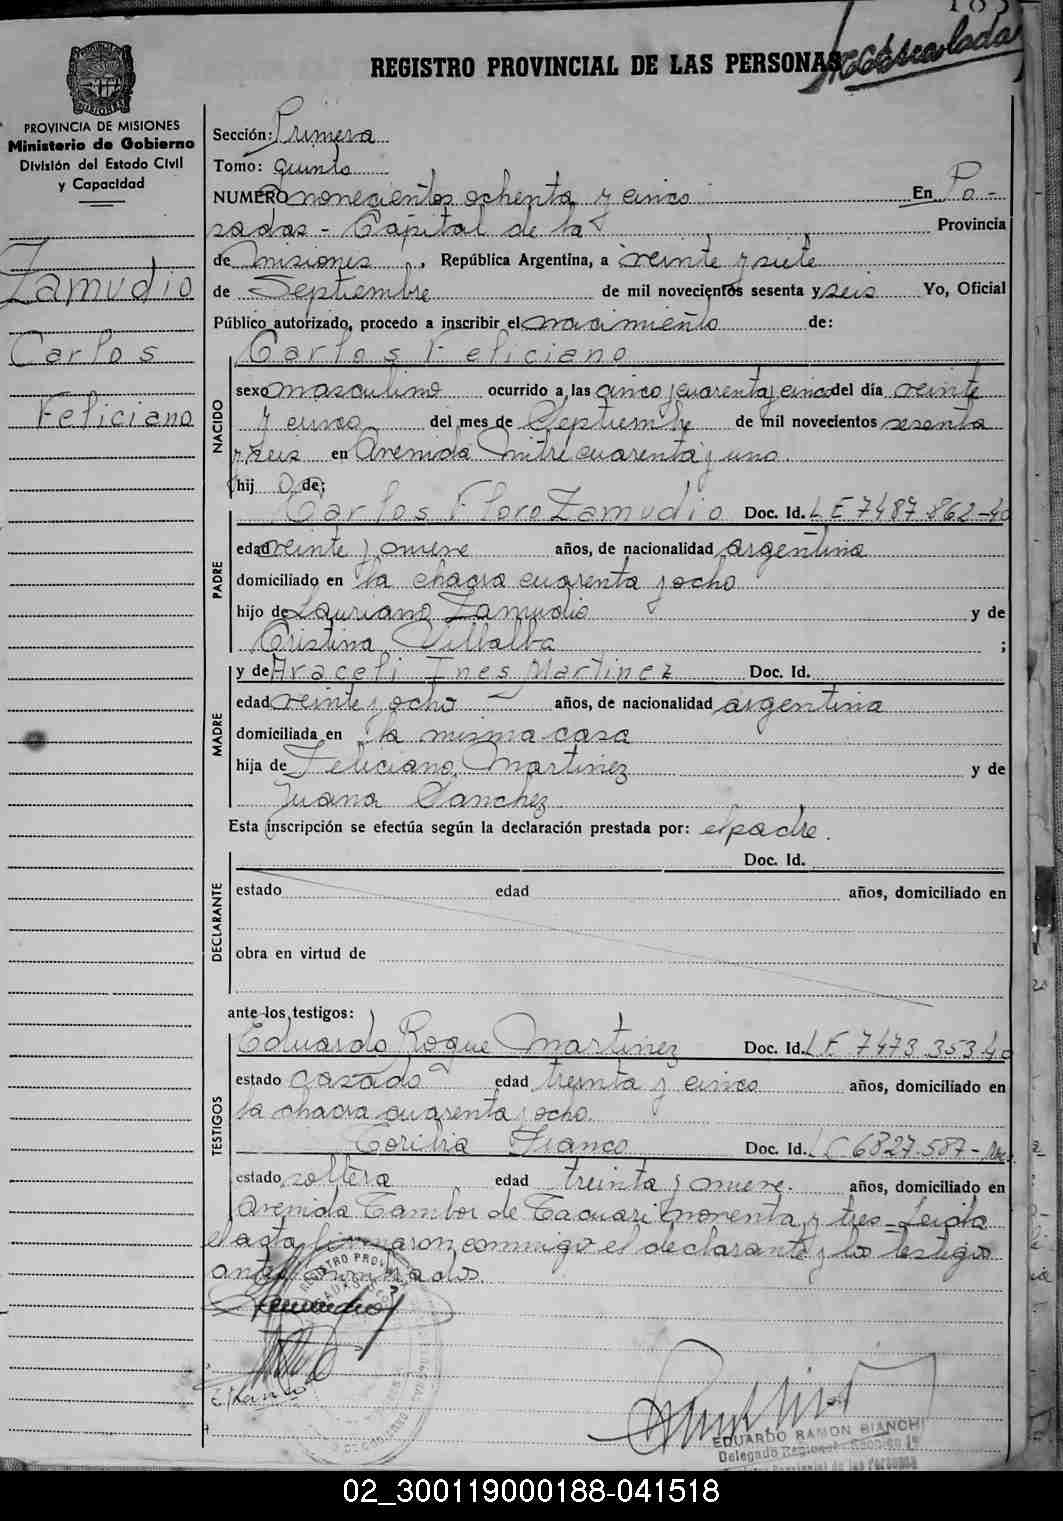 185
Mecánicolada
REGISTRO PROVINCIAL DE LAS PERSONAS
PROVINCIA DE MISIONES
Ministerio de Gobierno
División del Estado Civil
y Capacidad
Zamudio
Carlos
Feliciano
Sección: Primera
Tomo: quinto
NUMERO novecientos ochenta y cinco En Po-
sadas - Capital de la Provincia
de Misiones, República Argentina, a veinte y siete
de Septiembre de mil novecientos sesenta y seis Yo, Oficial
Público autorizado, procedo a inscribir el nacimiento de:
NACIDO
Carlos Feliciano
sexo masculino ocurrido a las cinco y cuarenta y cinco del día veinte
y cinco del mes de Septiembre de mil novecientos sesenta
y seis en Avenida Mitre cuarenta y uno
hij o de:
PADRE
Carlos Floro Zamudio Doc. Id. L E 7487.862-
edad veinte y nueve años, de nacionalidad argentina
domiciliado en la chacra cuarenta y ocho
hijo de Lauriano Zamudio y de
Cristina Villalba ;
MADRE
y de Araceli Ines Martinez Doc. Id.
edad veinte y ocho años, de nacionalidad argentina
domiciliada en la misma casa
hija de Feliciano Martinez y de
Juana Sanchez
Esta inscripción se efectúa según la declaración prestada por: el padre.
DECLARANTE
Doc. Id.
estado edad años, domiciliado en
obra en virtud de
ante los testigos:
TESTIGOS
Eduardo Roque Martinez Doc. Id. L E 7473.353
estado casado edad treinta y cinco años, domiciliado en
la chacra cuarenta y ocho
Toribia Franco Doc. Id. L C 6827.587-
estado soltera edad treinta y nueve. años, domiciliado en
Avenida Tambor de Tacuari noventa y tres - Leida
el acta firmaron conmigo el declarante y los testigos
REGISTRO PROVINCIAL
EDUARDO RAMON BIANCHI
Delegado Regional - Sección 1ª
Registro Provincial de las Personas
02_300119000188-041518